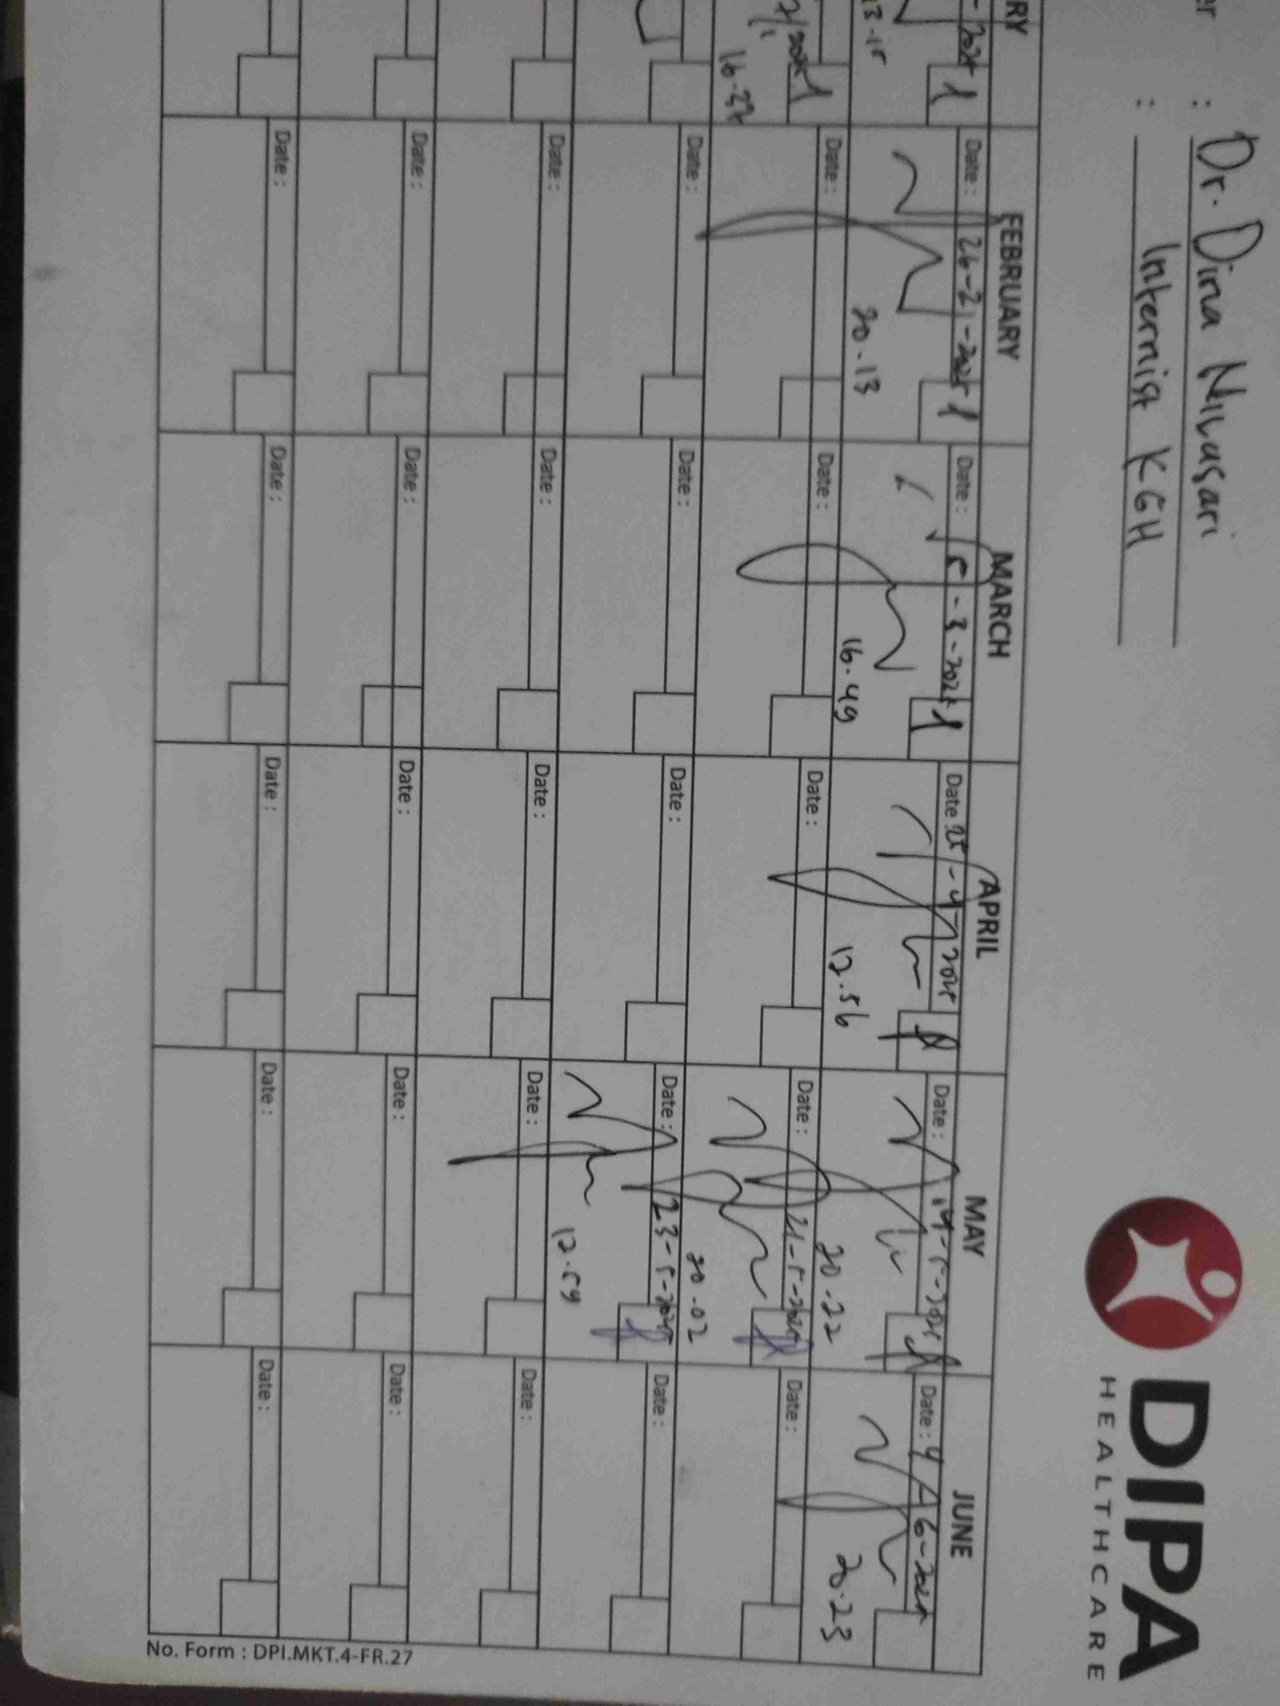 er : Dr. Dina Nilasari
: Internist KGH
DIPA
HEALTHCARE
RY FEBRUARY MARCH APRIL MAY JUNE
-2025 Date : 26-2-2025 Date : 5-3-2025 Date : 25-4-2025 Date : 14-5-2025 Date : 4-6-2025
13.15 20.13 16.49 12.56 20.22 20.23
/1/2025 Date : Date : Date : Date : 21-5-2025 Date :
16.27 20.02
Date : Date : Date : Date : 23-5-2025 Date :
12.59
Date : Date : Date : Date : Date :
Date : Date : Date : Date : Date :
Date : Date : Date : Date : Date :
No. Form : DPI.MKT.4-FR.27